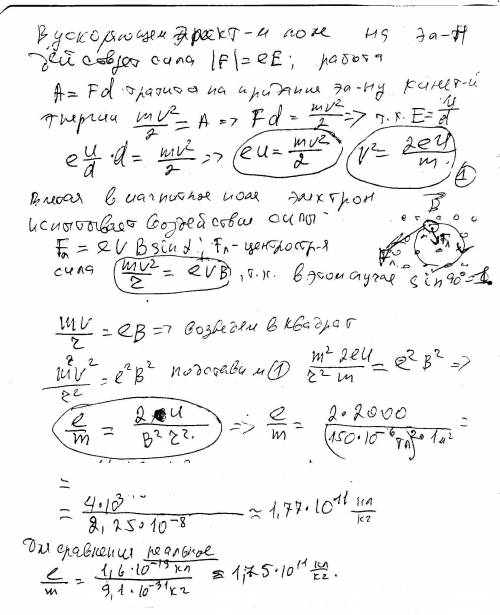 В ускоряющем элект-м поле на эл-н
действует сила |F| = eE; работа
A = Fd тратится на придание эл-ну кинет-й
энергии mv²/2 = A => Fd = mv²/2 => т.к. E = U/d
e U/d · d = mv²/2 => eU = mv²/2   v² = 2eU/m   ①
Влетая в магнитное поле электрон
испытывает воздействие силы
Fл = eVB sin α; Fл - центростр-я
сила mv²/r = eVB, т.к. в этом случае sin 90° = 1.
B
Fл
mv/r = eB => возведем в квадрат
m²v²/r² = e²B² подставим ① m² 2eU/r² m = e²B² =>
e/m = 2U/B² r² => e/m = 2·2000/(150·10⁻⁶ Тл)²·1м² =
=
= 4·10³/2,25·10⁻⁸ ≈ 1,77·10¹¹ кл/кг
Для сравнения реальное
e/m = 1,6·10⁻¹⁹ кл/9,1·10⁻³¹ кг ≈ 1,75·10¹¹ кл/кг.